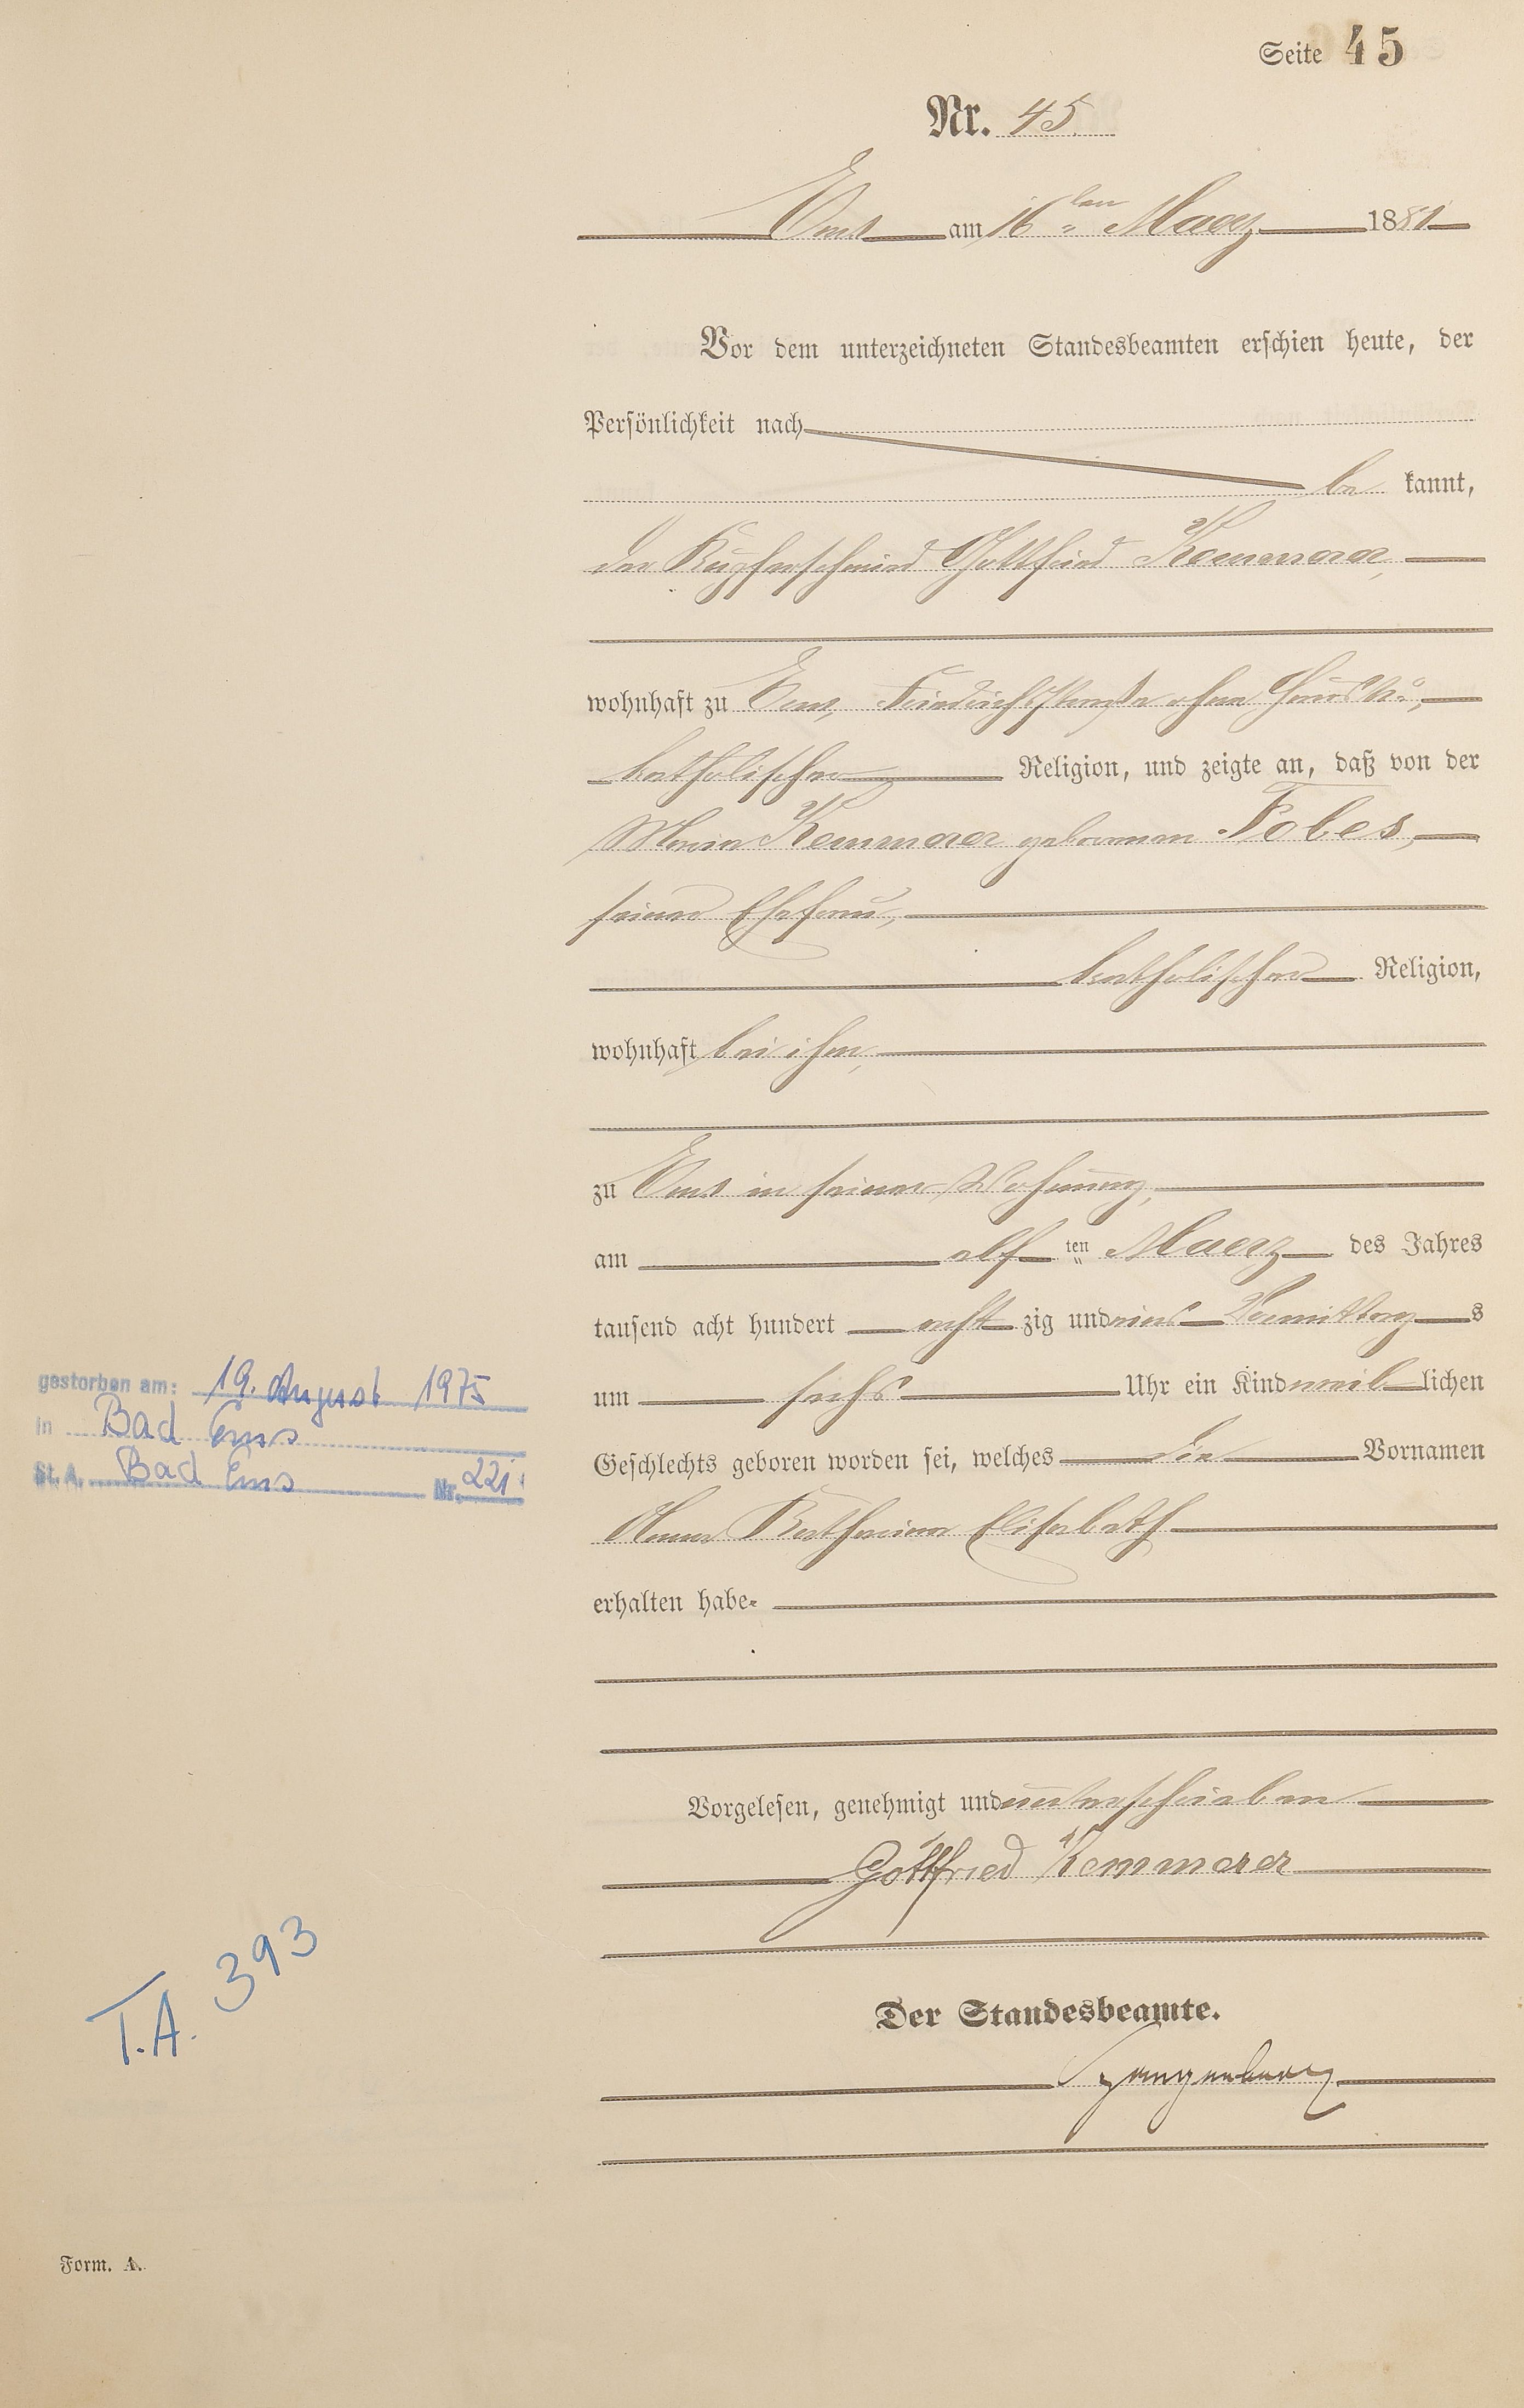 Seite 45
Nr. 45.
Ems am 16ten Maerz 1881
Vor dem unterzeichneten Standesbeamten erschien heute, der
Persönlichkeit nach
be kannt,
der Kupferschmied Gottfried Kemmerer,
wohnhaft zu Ems, Friedrichsstraße ohne Haus Nr.,
katholischer Religion, und zeigte an, daß von der
Maria Kemmerer geborenen Fobes,
seiner Ehefrau,
katholischer Religion,
wohnhaft bei ihm,
zu Ems in seiner Wohnung,
am elf ten Maerz des Jahres
tausend acht hundert acht zig und eins Vormittag s
um sechs Uhr ein Kind weib lichen
Geschlechts geboren worden sei, welches die Vornamen
Anna Katharina Elisabeth
erhalten habe
gestorben am: 19. August 1975
in Bad Ems
St. A. Bad Ems Nr. 221
Vorgelesen, genehmigt und unterschrieben
Gottfried Kemmerer
Der Standesbeamte.
Spangenberg
T.A. 393
Form. A.